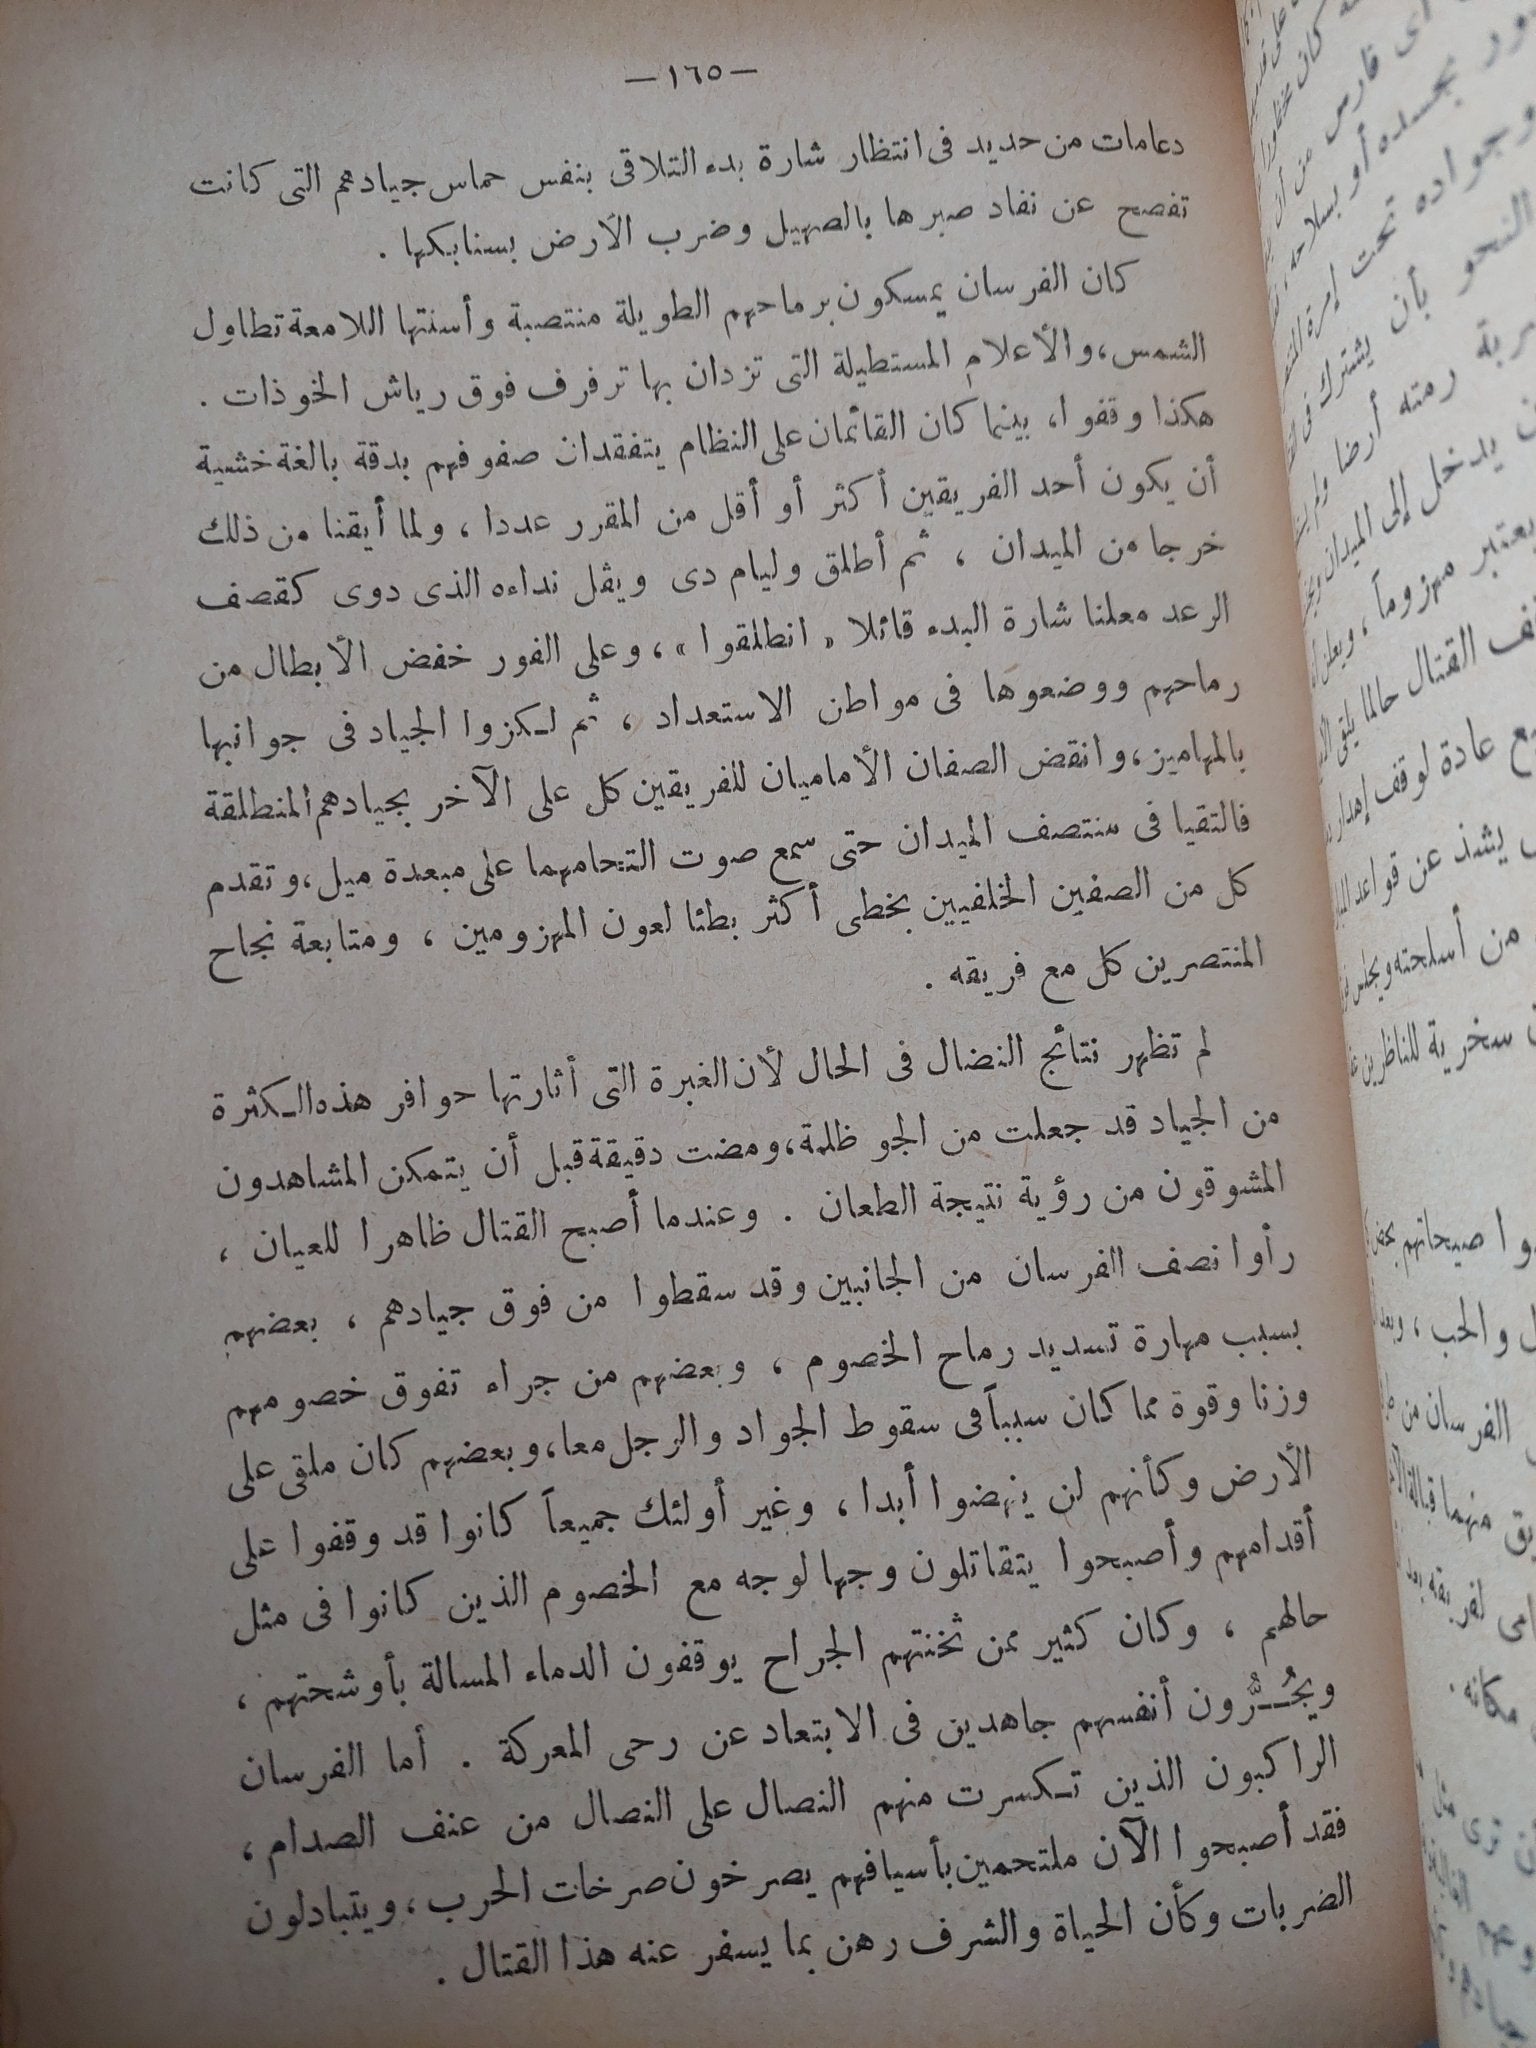 — ١٦٥ —
دعامات من حديد فى انتظار شارة بدء التلاقى بنفس حماس جيادهم التى كانت
تفصح عن نفاد صبرها بالصهيل وضرب الأرض بسنابكها .
كان الفرسان يمسكون برماحهم الطويلة منتصبة وأسنتها اللامعة تطاول
الشمس، والأعلام المستطيلة التى تزدان بها ترفرف فوق رياش الخوذات .
هكذا وقفوا، بينما كان القائمان على النظام يتفقدان صفوفهم بدقة بالغة خشية
أن يكون أحد الفريقين أكثر أو أقل من المقرر عددا ، ولما أيقنا من ذلك
خرجا من الميدان ، ثم أطلق وليام دى ويڤل نداءه الذى دوى كقصف
الرعد معلنا شارة البدء قائلا « انطلقوا » ، وعلى الفور خفض الأبطال من
رماحهم ووضعوها فى مواطن الاستعداد ، ثم لكزوا الجياد فى جوانبها
بالمهاميز، وانقض الصفان الأماميان للفريقين كل على الآخر بجيادهم المنطلقة
فالتقيا فى منتصف الميدان حتى سمع صوت التحامهما على مبعدة ميل، وتقدم
كل من الصفين الخلفيين بخطى أكثر بطئا لعون المهزومين ، ومتابعة نجاح
المنتصرين كل مع فريقه .
لم تظهر نتائج النضال فى الحال لأن الغبرة التى أثارتها حوافر هذه الكثرة
من الجياد قد جعلت من الجو ظلمة، ومضت دقيقة قبل أن يتمكن المشاهدون
المشوقون من رؤية نتيجة الطعان . وعندما أصبح القتال ظاهرا للعيان ،
رأوا نصف الفرسان من الجانبين وقد سقطوا من فوق جيادهم ، بعضهم
بسبب مهارة تسديد رماح الخصوم ، وبعضهم من جراء تفوق خصومهم
وزنا وقوة مما كان سبباً فى سقوط الجواد والرجل معا، وبعضهم كان ملقى على
الأرض وكأنهم لن ينهضوا أبدا ، وغير أولئك جميعاً كانوا قد وقفوا على
أقدامهم وأصبحوا يتقاتلون وجها لوجه مع الخصوم الذين كانوا فى مثل
حالهم ، وكان كثير ممن ثخنتهم الجراح يوقفون الدماء المسالة بأوشحتهم ،
ويجُـرُّون أنفسهم جاهدين فى الابتعاد عن رحى المعركة . أما الفرسان
الراكبون الذين تكسرت منهم النصال على النصال من عنف الصدام ،
فقد أصبحوا الآن ملتحمين بأسيافهم يصرخون صرخات الحرب، ويتبادلون
الضربات وكأن الحياة والشرف رهن بما يسفر عنه هذا القتال .